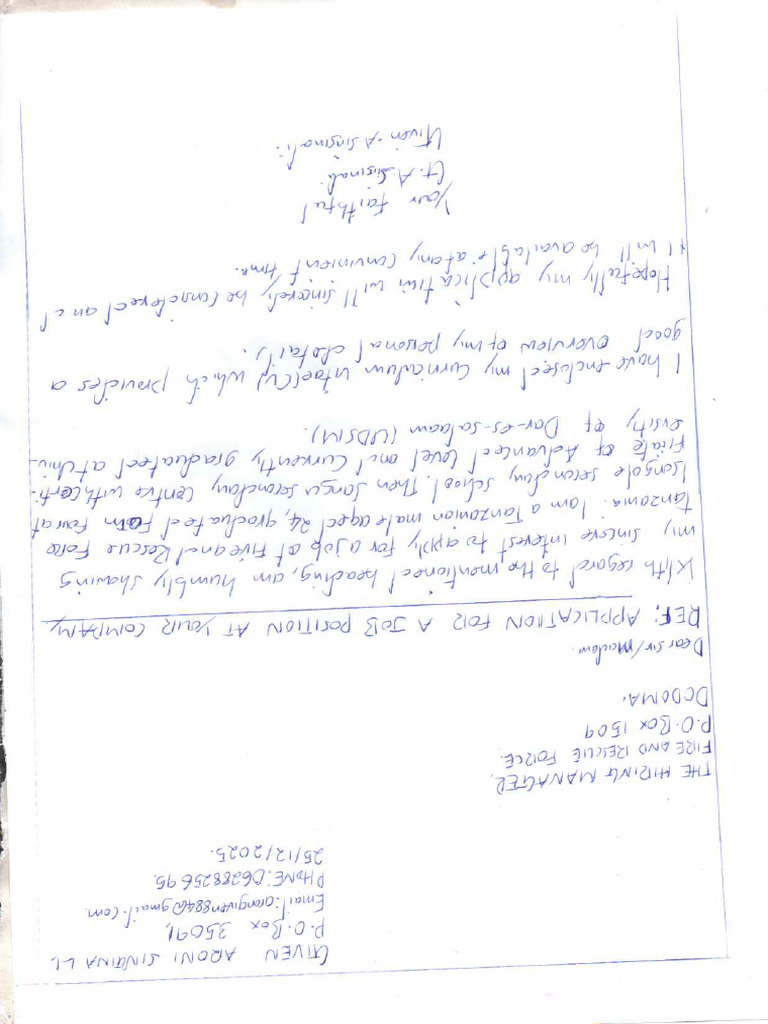 GIVEN ARONI SINGINALI.
P.O.Box 35091,
Email: arongiven884@gmail.com.
PHONE: 0628825695.
25/12/2025.
THE HIRING MANAGER,
FIRE AND RESCUE FORCE.
P.O.Box 1509
DODOMA.
Dear sir/Madam.
REF: APPLICATION FOR A JOB POSITION AT YOUR COMPANY
With regard to the mentioned heading, am humbly showing
my sincere interest to apply for a job at Fire and Rescue Force
Tanzania. I am a Tanzanian male aged 24, graduated Form Four at
secondary school. Then Sangu secondary centre with certi-
ficate of Advanced level and currently graduated at Univ-
ersity of Dar-es-salaam (UDSM).
I have enclosed my curriculum vitae(CV) which provides a
good overview of my personal details.
Hopefully my application will sincerely be considered and
I will be available at any convinient time.
Your faithful
G.A.
Given-A